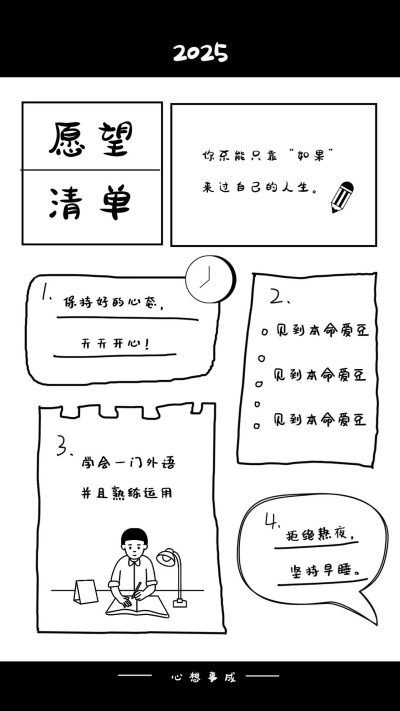 2025
愿望
清单
你不能只靠“如果”
来过自己的人生。
1.
保持好的心态，
天天开心！
2.
见到本命爱豆
见到本命爱豆
见到本命爱豆
3.
学会一门外语
并且熟练运用
4.
拒绝熬夜，
坚持早睡。
心想事成